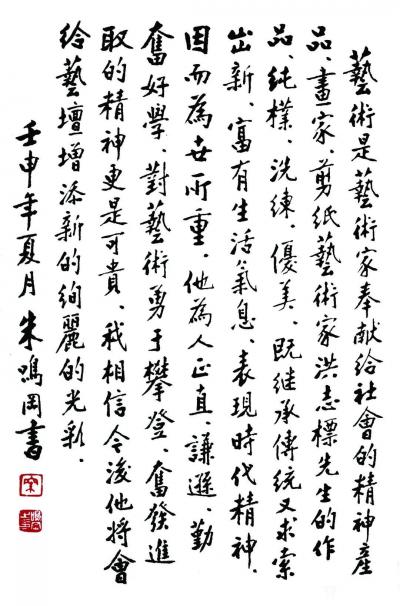 藝術是藝術家奉献給社會的精神產
品、畫家、剪紙藝術家洪志標先生的作
品、純樸、洗練、優美、既継承傳統又求索
出新、富有生活氣息、表現時代精神、
因而為世所重、他為人正直、謙遜、勤
奮好學、對藝術勇于攀登、奮發進
取的精神更是可貴、我相信今後他將會
給藝壇增添新的絢麗的光彩.
壬申年夏月朱鳴岡書